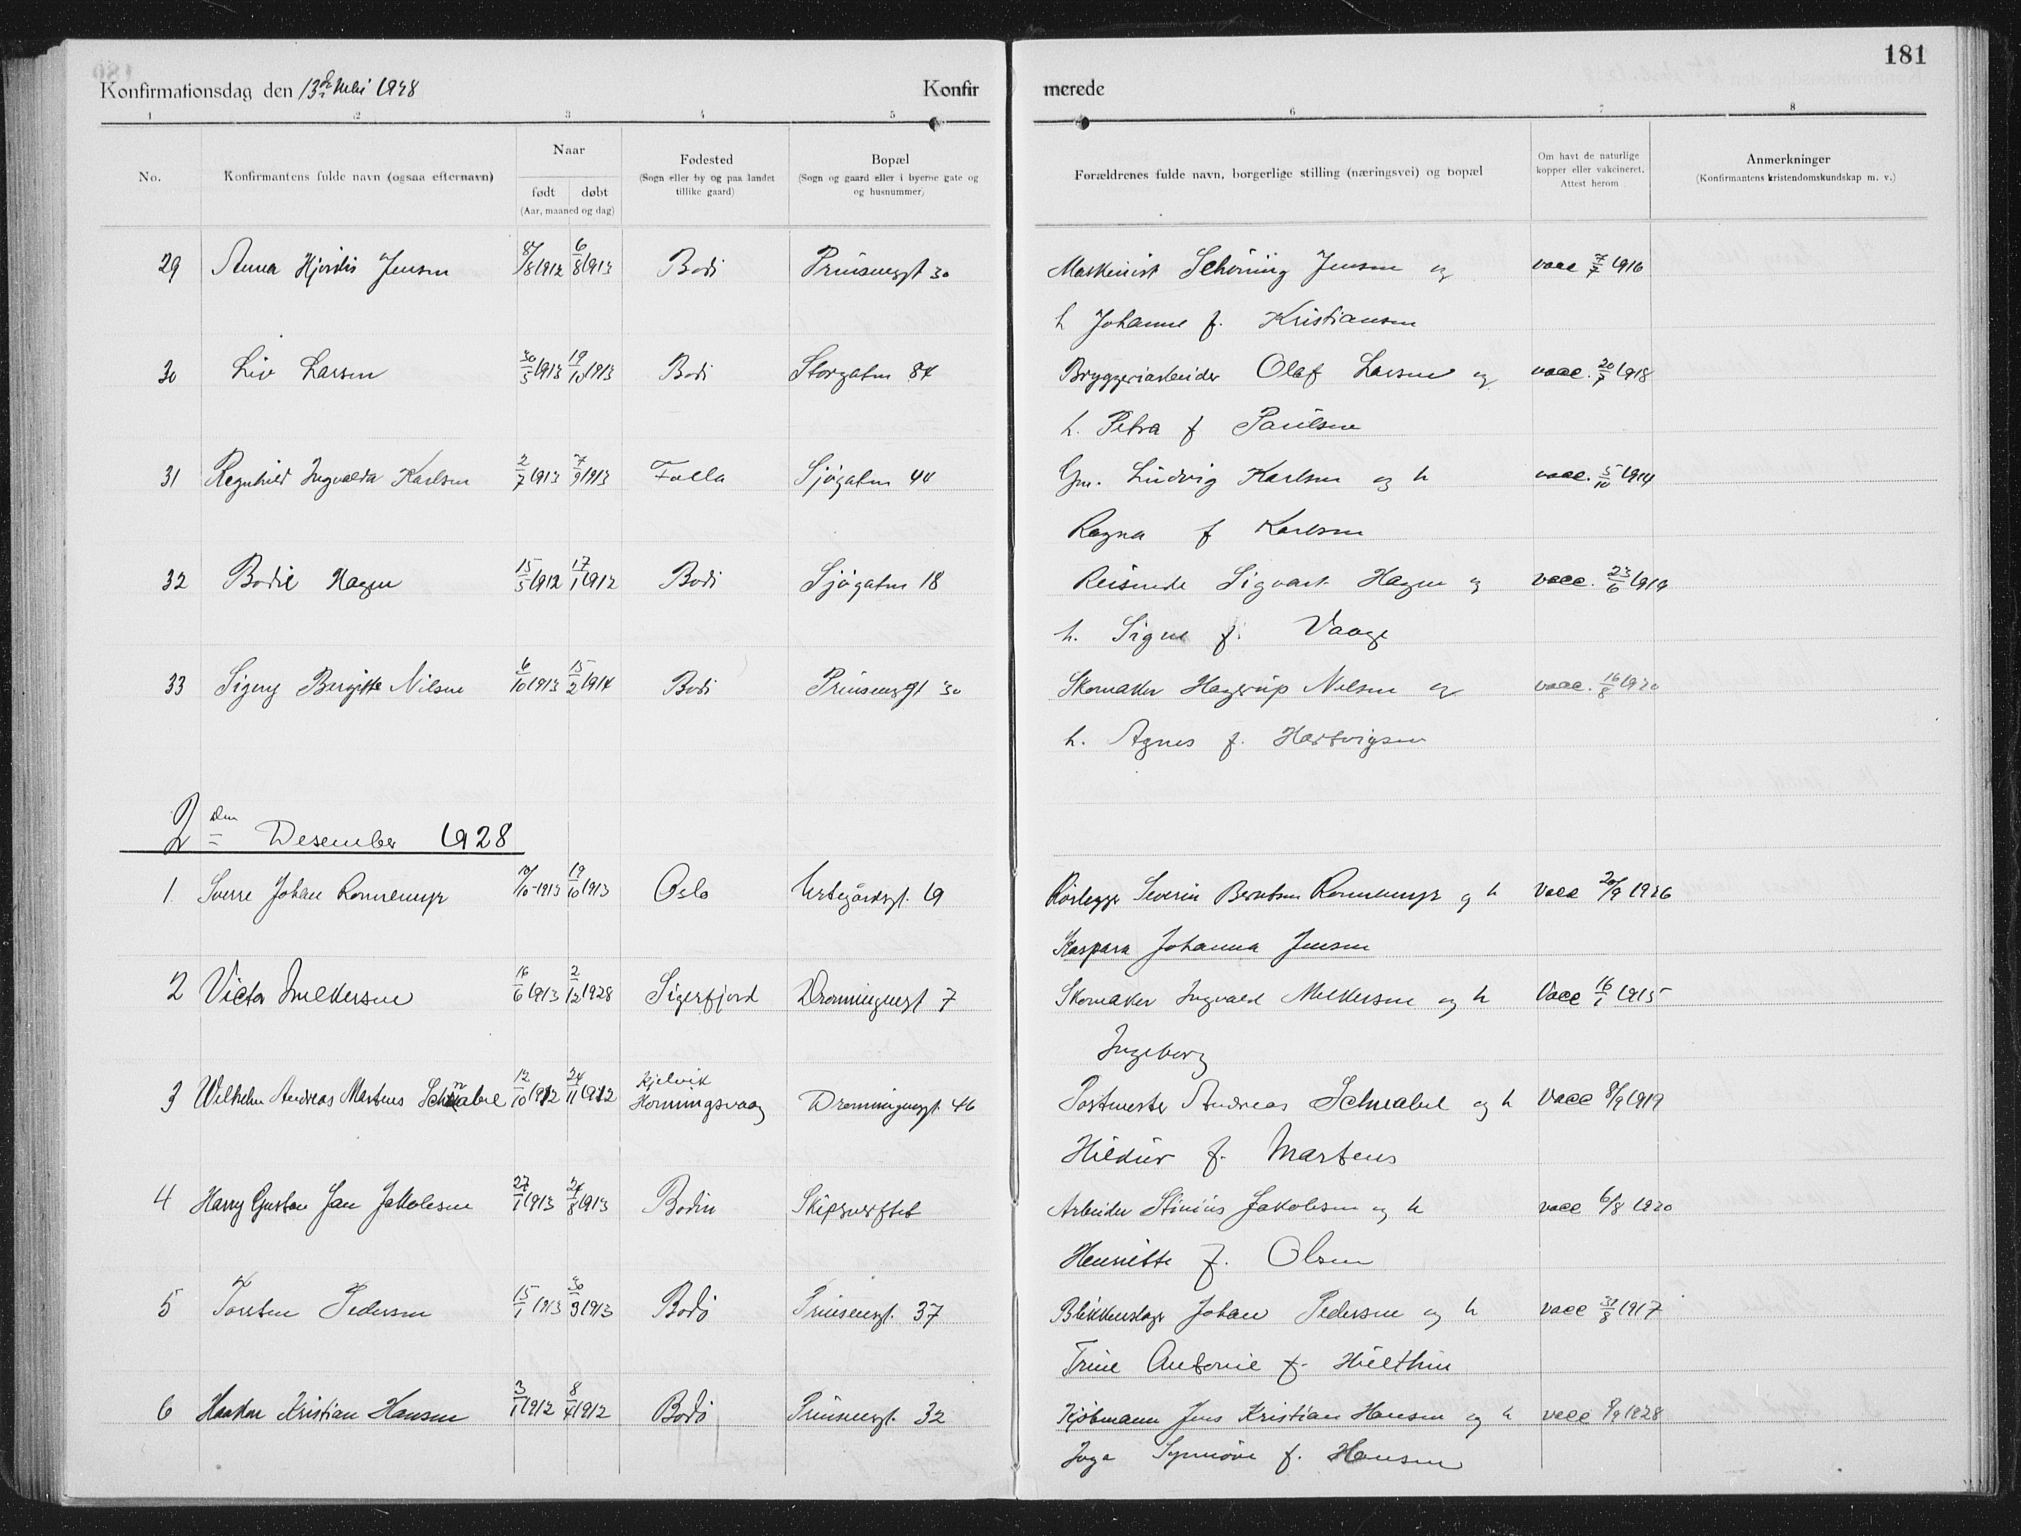 181
Konfirmationsdag den 13de Mai 1928 Konfir merede
1 2 3 4 5 6 7 8
No. Konfirmantens fulde navn (ogsaa efternavn) Naar født døbt (Aar, maaned og dag) Fødested (Sogn eller by og paa landet tillike gaard) Bopæl (Sogn og gaard eller i byerne gate og og husnummer) Forældrenes fulde navn, borgerlige stilling (næringsvei) og bopæl Om havt de naturlige kopper eller vakcineret. Attest herom Anmerkninger (Konfirmantens kristendomskundskap m. v.)
29 Anna Hjördis Jensen 8/8 1912 6/8 1913 Bodö Prinsensgt 30 Maskinist Schöning Jensen og vacc 7/7 1916
h Johanne f. Kristiansen
30 Liv Larsen 30/5 1913 19/10 1913 Bodö Storgaten 84 Bryggeriarbeider Olaf Larsen og vacc. 20/7 1918
h. Petra f Paulsen
31 Ragnhild Ingvalda Karlsen 2/7 1913 7/9 1913 Folla Sjögaten 44 Gm. Ludvig Karlsen og h vacc. 5/10 1914
Ragna f Karlsen
32 Bodil Hagen 15/5 1912 17/1 1912 Bodö Sjögaten 18 Reisende Sigvart Hagen og vacc. 23/6 1919
h. Signe f. Vaage
33 Signy Birgitte Nilsen 6/10 1913 15/2 1914 Bodö Prinsensgt 30 Skomaker Hagerup Nilsen og vacc. 16/8 1920
h. Agnes f. Hartvigsen
2den Desember 1928
1 Sverre Johan Ronnemyr 10/10 1913 19/10 1913 Oslo Urtegårdsgt. 19 Rörlegger Severin Berntsen Ronnemyr og h Vacc 20/9 1926
Kaspara Johanna Jensen
2 Victor Melkersen 16/6 1913 2/12 1928 Sigerfjord Dronningensgt 7 Skomaker Ingvald Melkersen og h Vacc 16/1 1915
Ingeborg
3 Wilhelm Andreas Martens Schnabel 12/10 1912 24/11 1912 Kjelvik Honningsvaag Dronningensgt. 46 Postmester Andreas Schnabel og h Vacc 8/9 1919
Hildur f. Martens
4 Harry Gustav Jan Jakobsen 27/1 1913 24/8 1913 Bodin Skipsverftet Arbeider Stinius Jakobsen og h vacc 6/8 1920
Henriette f. Olsen
5 Torsten Pedersen 15/1 1913 30/3 1913 Bodö Prinsensgt. 37 Blikkenslager Johan Pedersen og h vacc 31/8 1917
Trine Antonie f. Hulthin
6 Haakon Kristian Hansen 3/1 1912 8/4 1912 Bodö Prinsensgt. 32 Kjöbmann Jens Kristian Hansen og h vacc 8/9 1928
Inga Synnöve f. Hansen